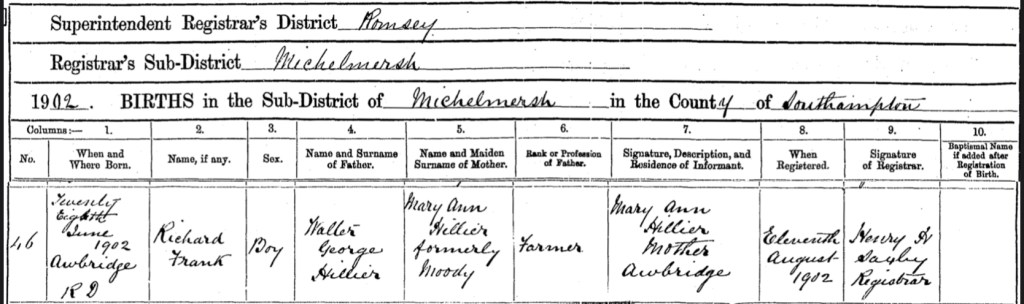 Superintendent Registrar's District Romsey
Registrar's Sub-District Michelmersh
1902. BIRTHS in the Sub-District of Michelmersh in the County of Southampton
Columns:— 1. 2. 3. 4. 5. 6. 7. 8. 9. 10.
No. When and Where Born. Name, if any. Sex. Name and Surname of Father. Name and Maiden Surname of Mother. Rank or Profession of Father. Signature, Description, and Residence of Informant. When Registered. Signature of Registrar. Baptismal Name if added after Registration of Birth.
46
Twenty
Eighth
June
1902
Awbridge
R D
Richard
Frank
Boy
Walter
George
Hillier
Mary Ann
Hillier
formerly
Moody
Farmer
Mary Ann
Hillier
Mother
Awbridge
Eleventh
August
1902
Henry
Registrar